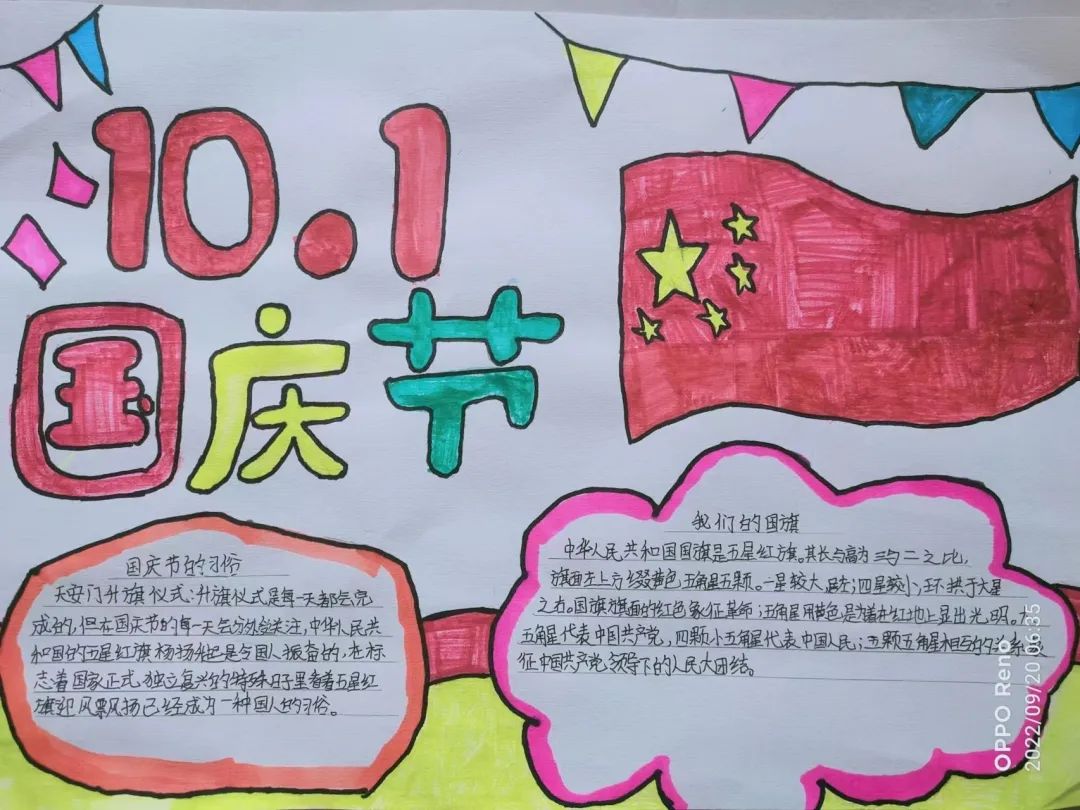 10.1
国庆节
国庆节的习俗
天安门升旗仪式:升旗仪式是每一天都会完
成的,但在国庆节的每一天会分外关注,中华人民共
和国的五星红旗扬扬升起是令国人振奋的,在标
志着国家正式独立复兴的特殊日子里看着五星红
旗迎风飘扬已经成为一种国人的习俗。
我们的国旗
中华人民共和国国旗是五星红旗。其长与高为三与二之比,
旗面左上方缀黄色五角星五颗。一星较大,居左;四星较小,环拱于大星
之右。国旗旗面的红色象征革命;五角星用黄色是为着在红地上显出光明。大
五角星代表中国共产党,四颗小五角星代表中国人民;五颗五角星相互的关系象
征中国共产党领导下的人民大团结。
OPPO Reno
2022/09/20 06:35